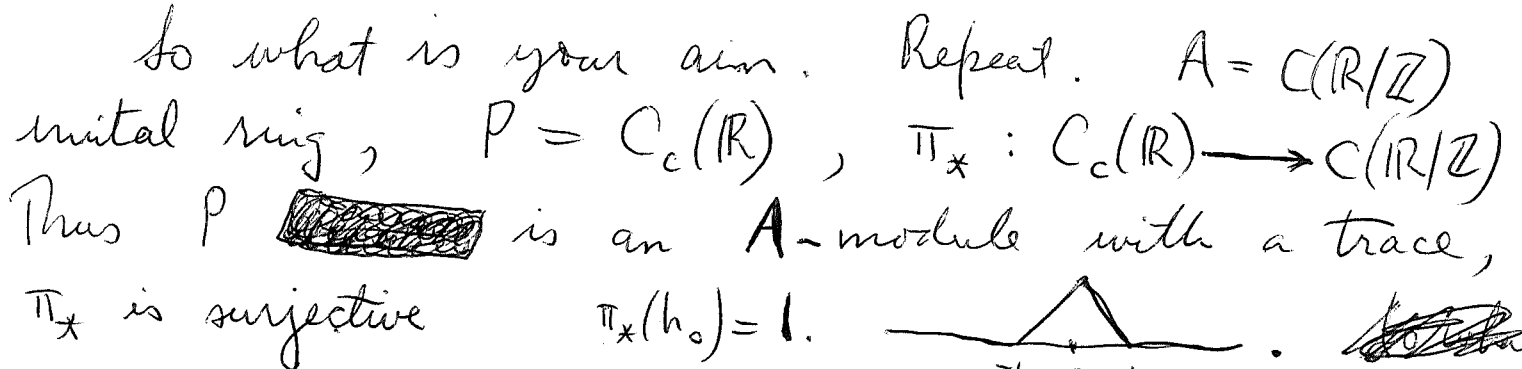 So what is your aim. Repeat. A = C(ℝ/ℤ)
unital ring, P = C_c(ℝ), π_* : C_c(ℝ) ⟶ C(ℝ/ℤ)
Thus P is an A-module with a trace,
π_* is surjective π_*(h_0) = 1.